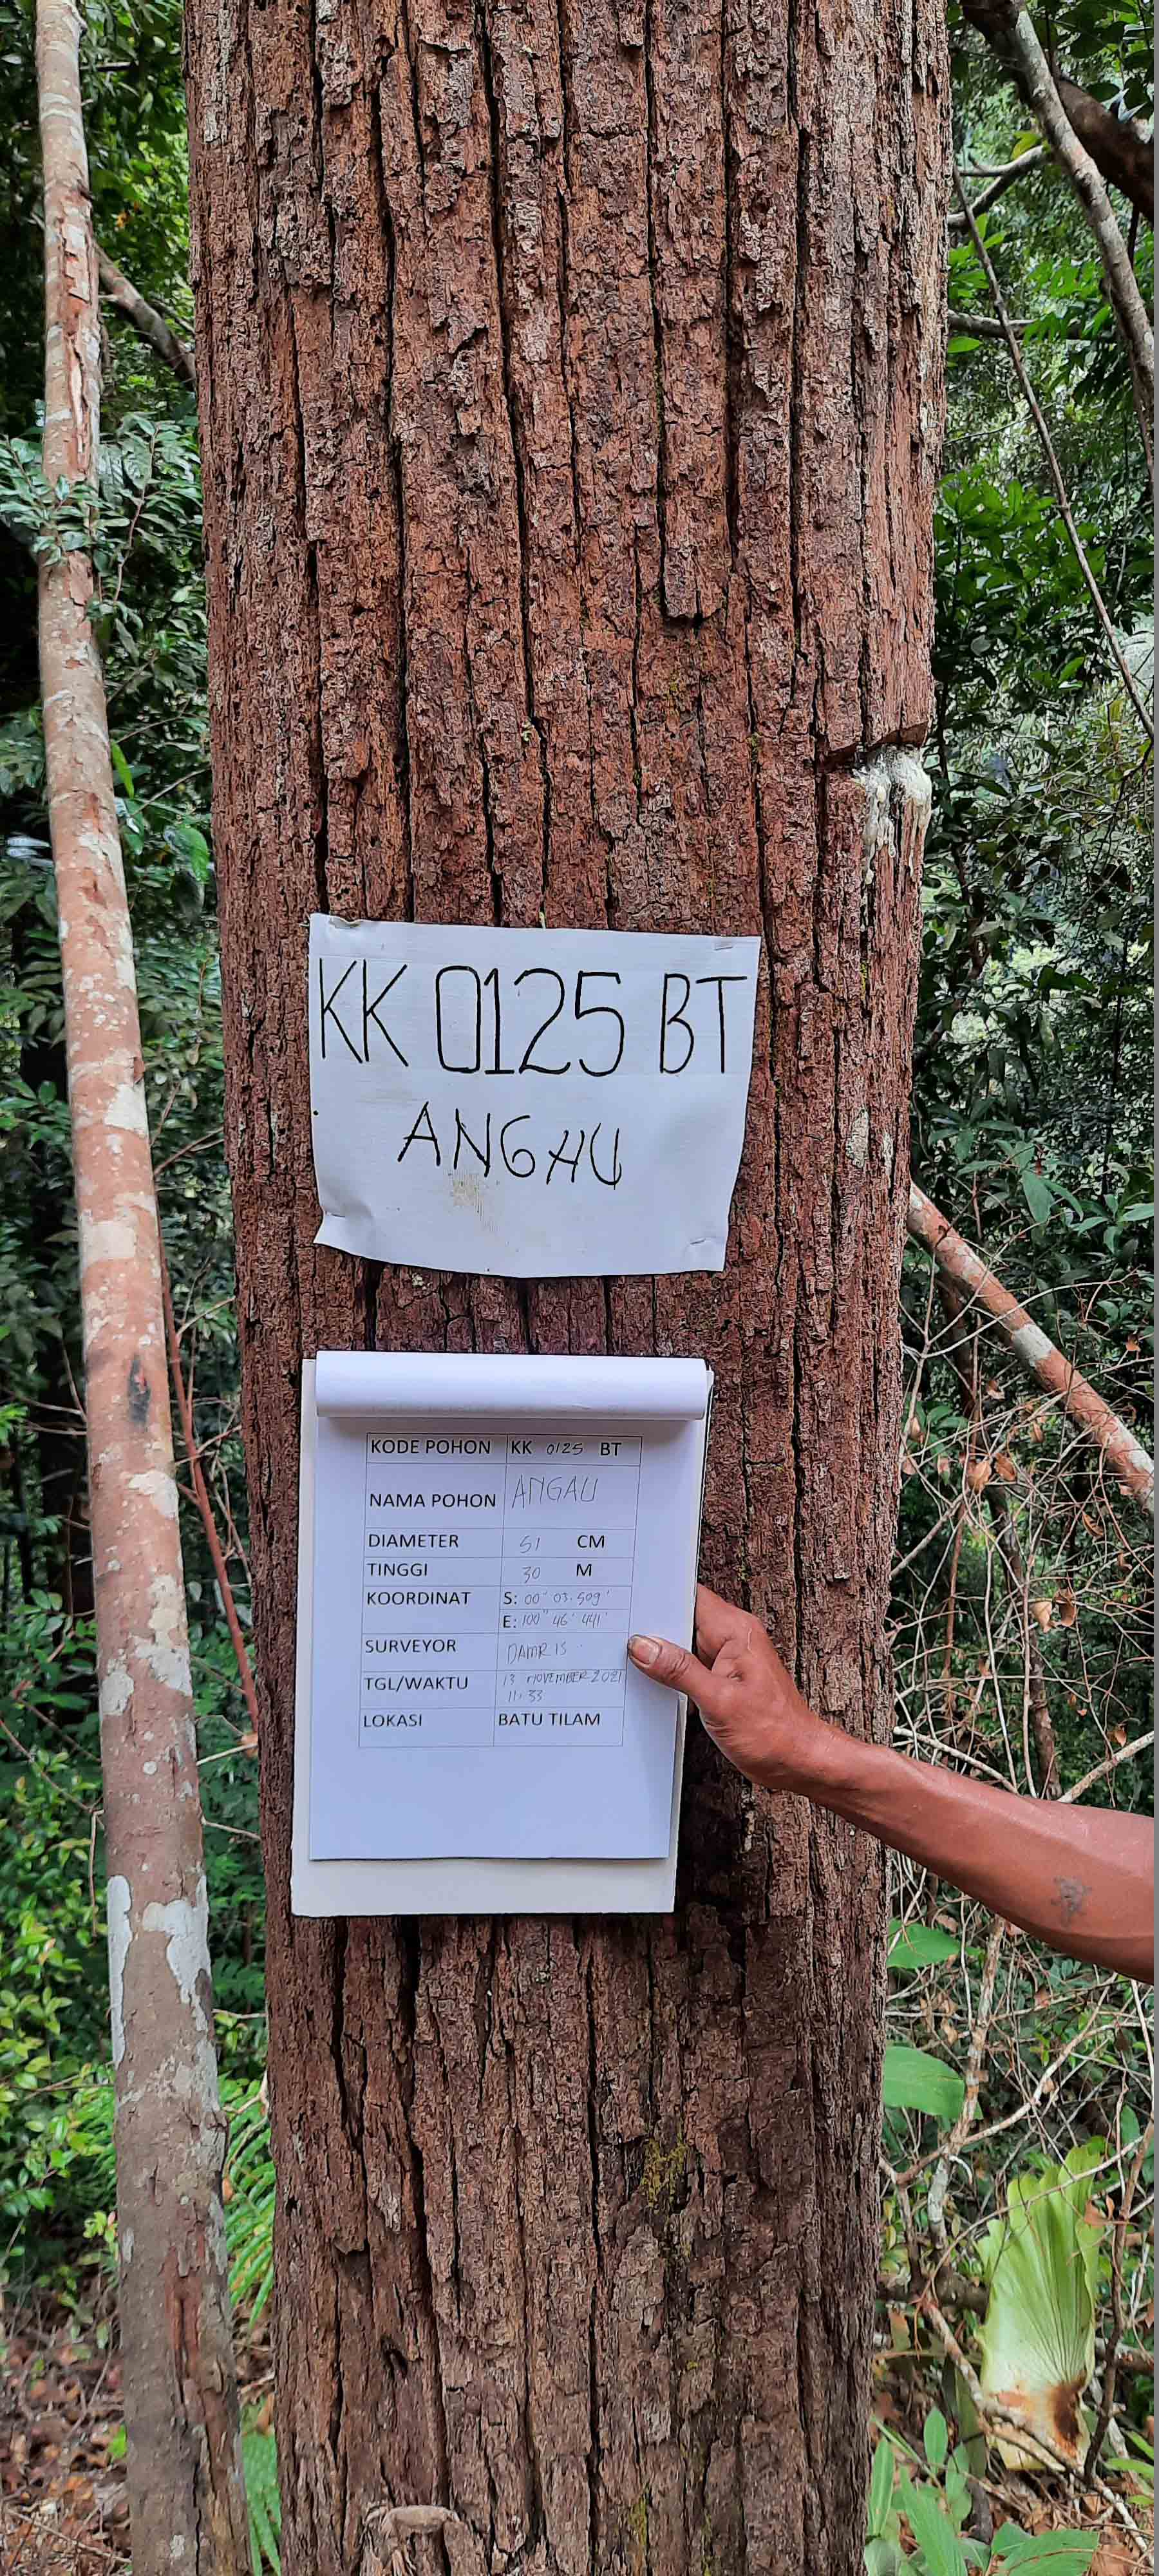 KK 0125 BT
ANGAU
KODE POHON KK 0125 BT
NAMA POHON ANGAU
DIAMETER 51 CM
TINGGI 30 M
KOORDINAT S: 00° 03. 509'
E: 100° 46' 441'
SURVEYOR DAMRIS
TGL/WAKTU 13 NOVEMBER 2021
11:33
LOKASI BATU TILAM